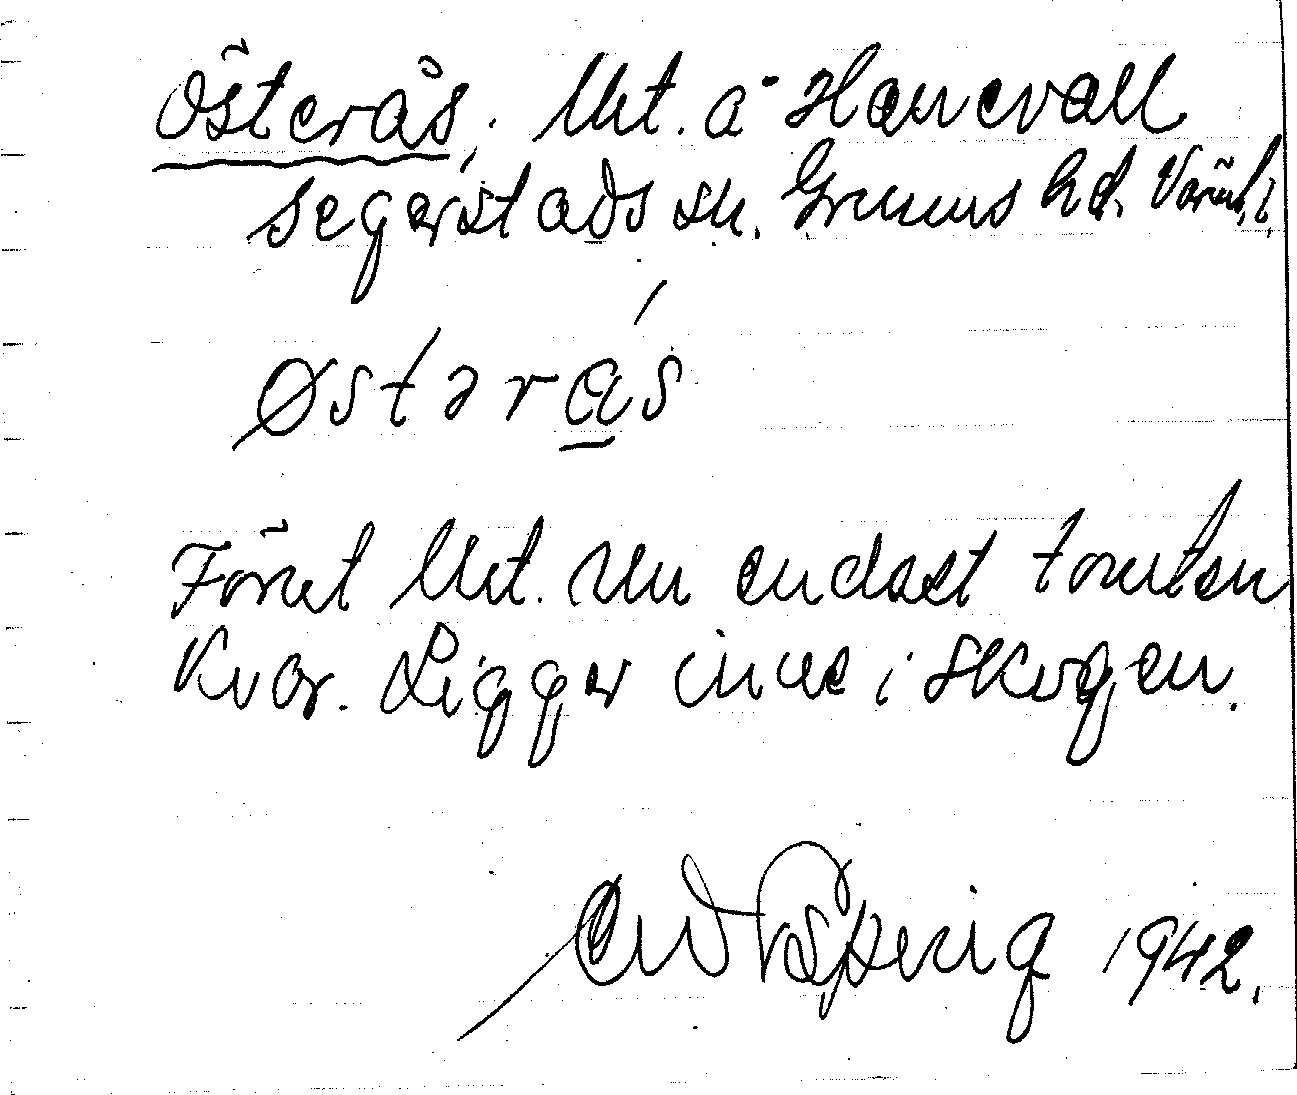 Österås, Utj. å Hanevall
Segerstads sn. Grums hd. Värml.
Østərås
Förut Utj. Nu endast tomten
kvar. Ligger inne i skogen.
1942.